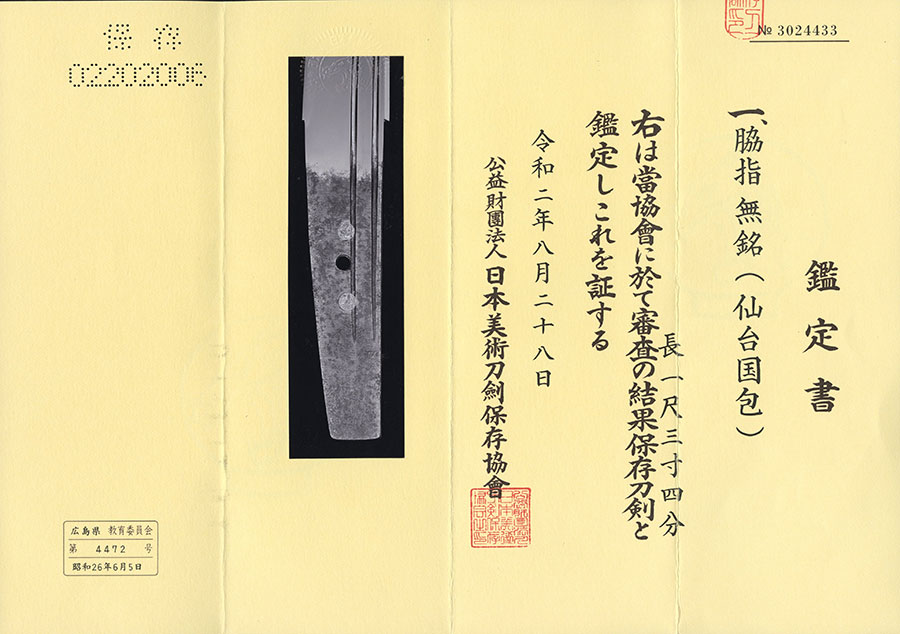 № 3024433
鑑定書
一、脇指 無銘(仙台国包)
長一尺三寸四分
右は當協會に於て審査の結果保存刀剣と
鑑定しこれを証する
令和二年八月二十八日
公益財團法人日本美術刀劍保存協會
保存
02202006
広島県 教育委員会
第 4472 号
昭和26年6月5日